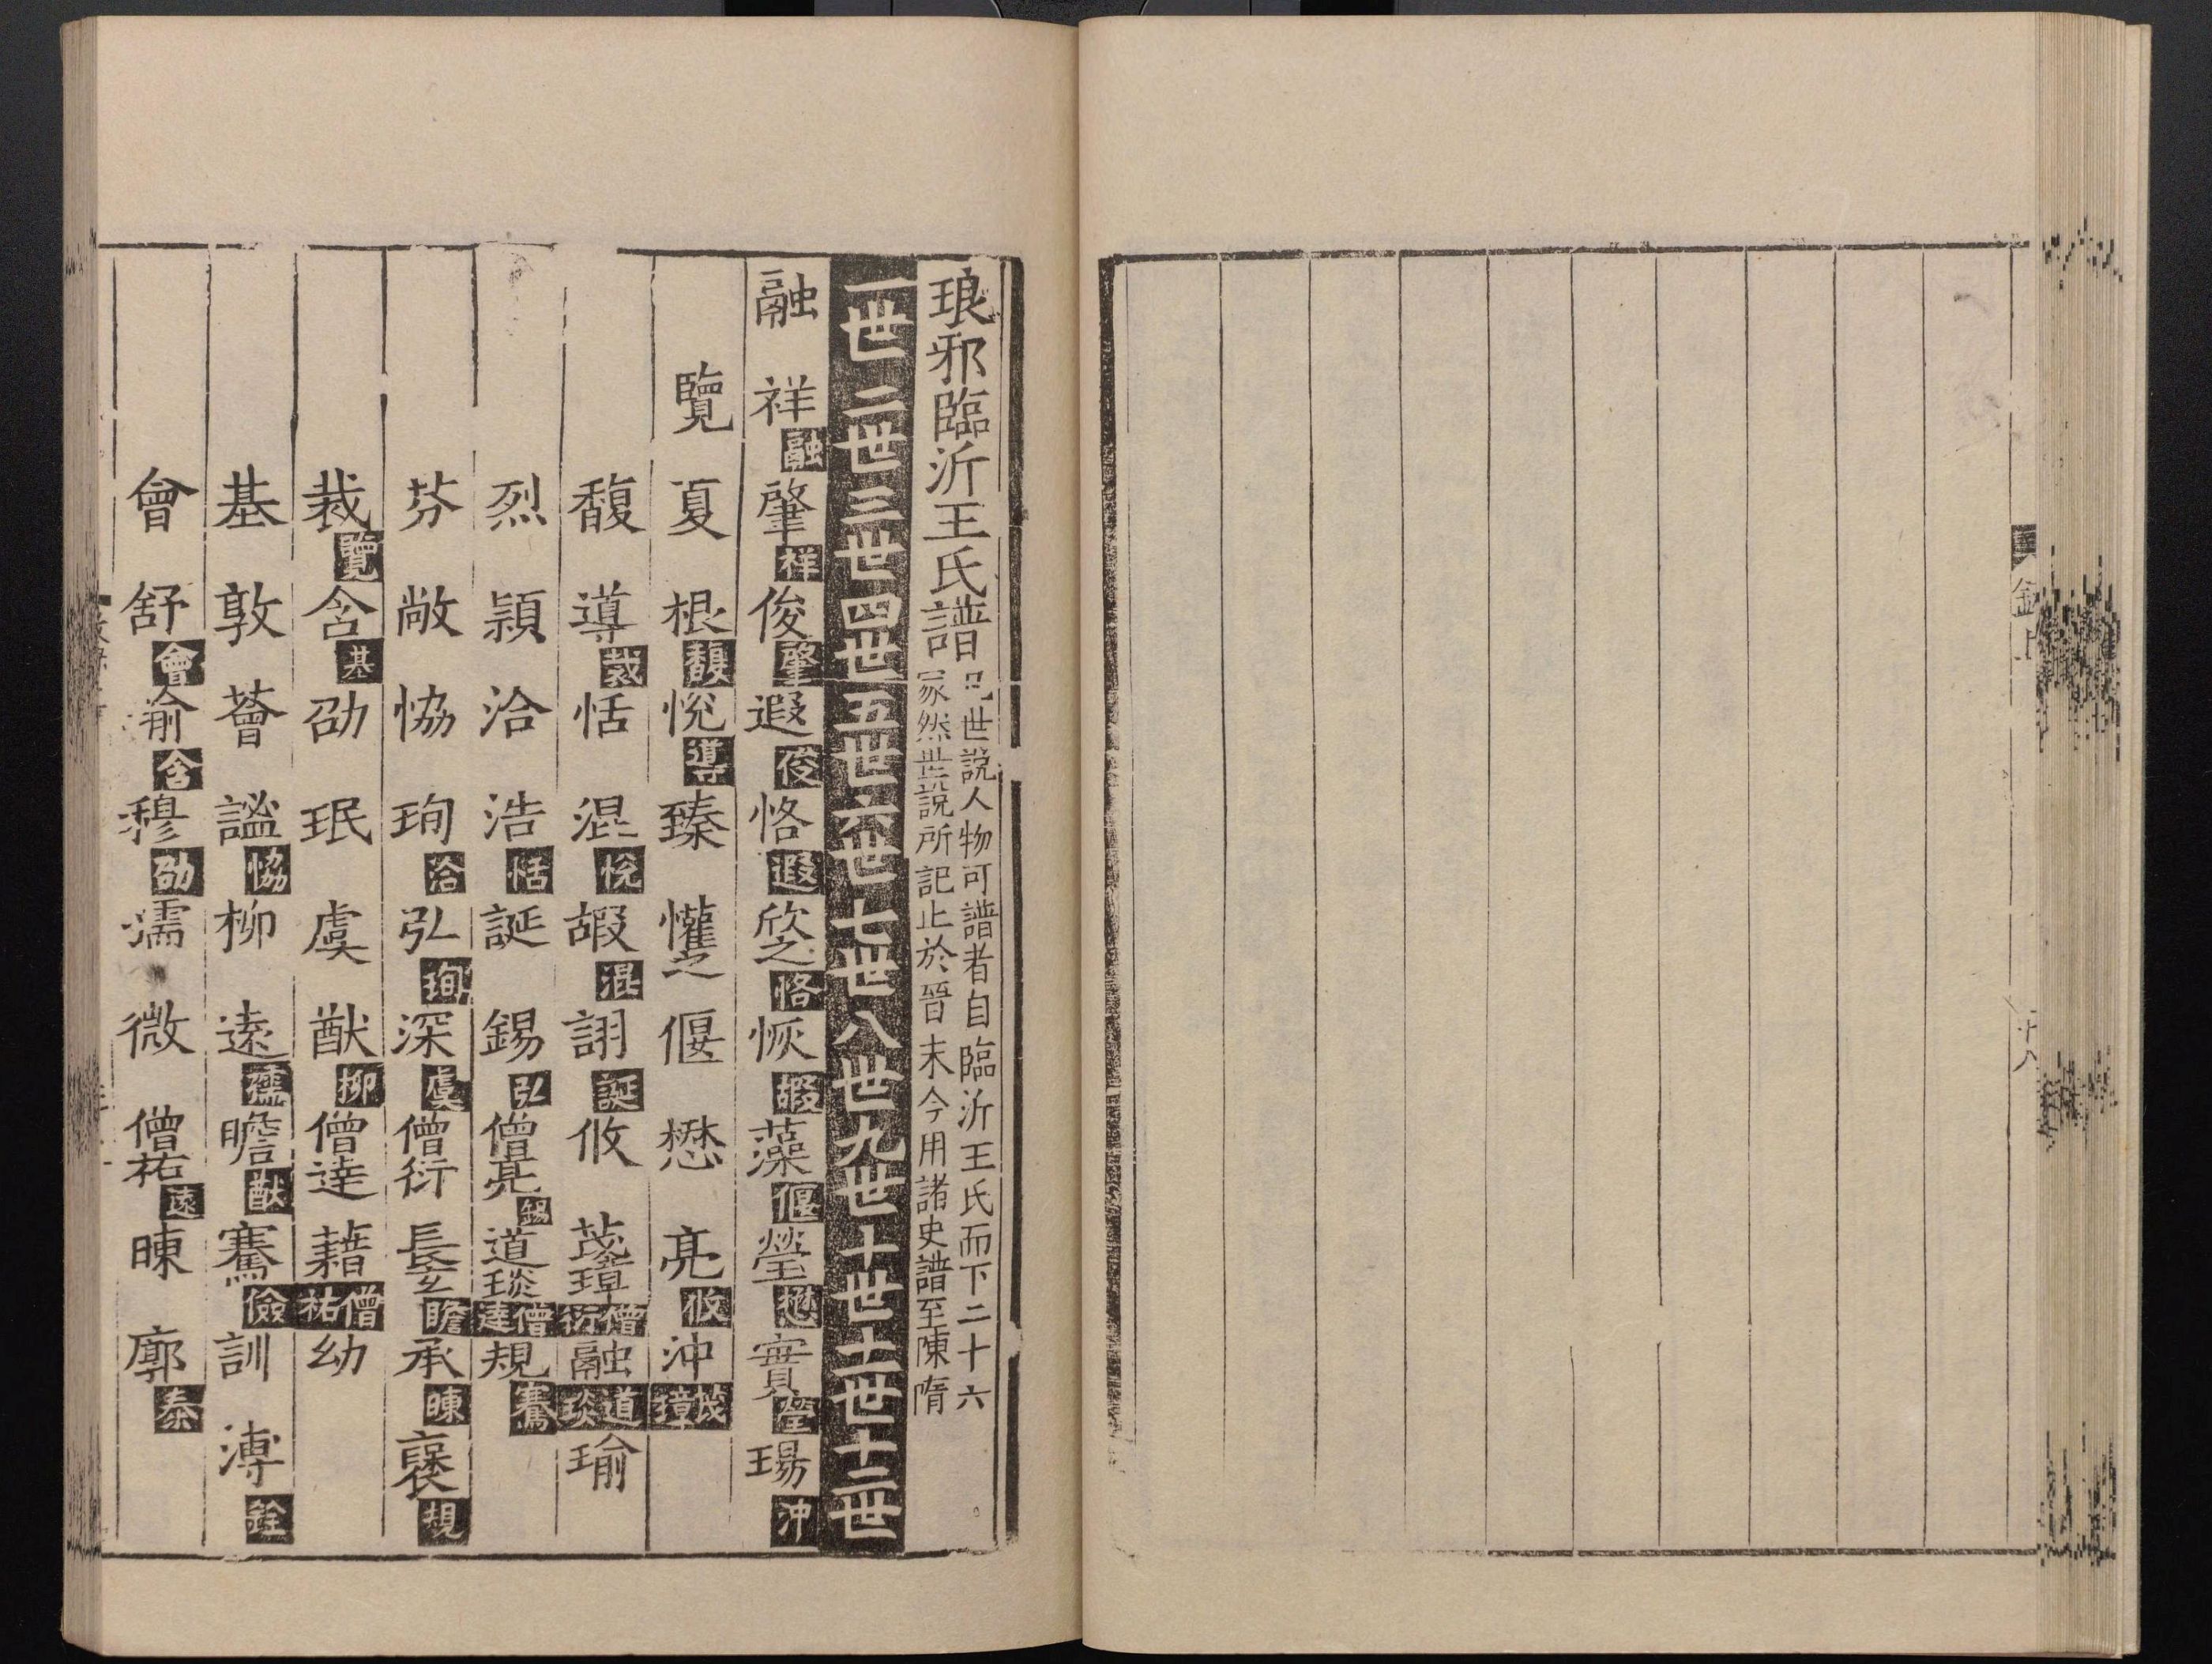 琅邪臨沂王氏譜 凡世說人物可譜者自臨沂王氏而下二十六
家然世說所記止於晉末今用諸史譜至陳隋
一世 二世 三世 四世 五世 六世 七世 八世 九世 十世 十一世 十二世
融 祥融 肇祥 俊肇 遐俊 恪遐 欣之恪 恢嘏 藻偃 瑩懋 實瑩 瑒沖
覽 夏 根馥 悅導 臻 懽之 偃 懋 亮攸 沖茂璋
馥 導裁 恬 混悅 嘏混 詡誕 攸 茂璋僧衍 融道琰 瑜
烈 穎 洽 浩恬 誕 錫弘 僧亮錫 道琰僧達 規騫
芬 敞 協 珣洽 弘珣 深虞 僧衍 長玄瞻 承暕 褒規
裁覽 含基 劭 珉 虞 猷柳 僧達 藉僧祐 幼
基 敦 薈 謐協 柳 遠孺 瞻猷 騫儉 訓 溥銓
會 舒會 俞含 穆劭 濡 微 僧祐遠 暕 廓泰